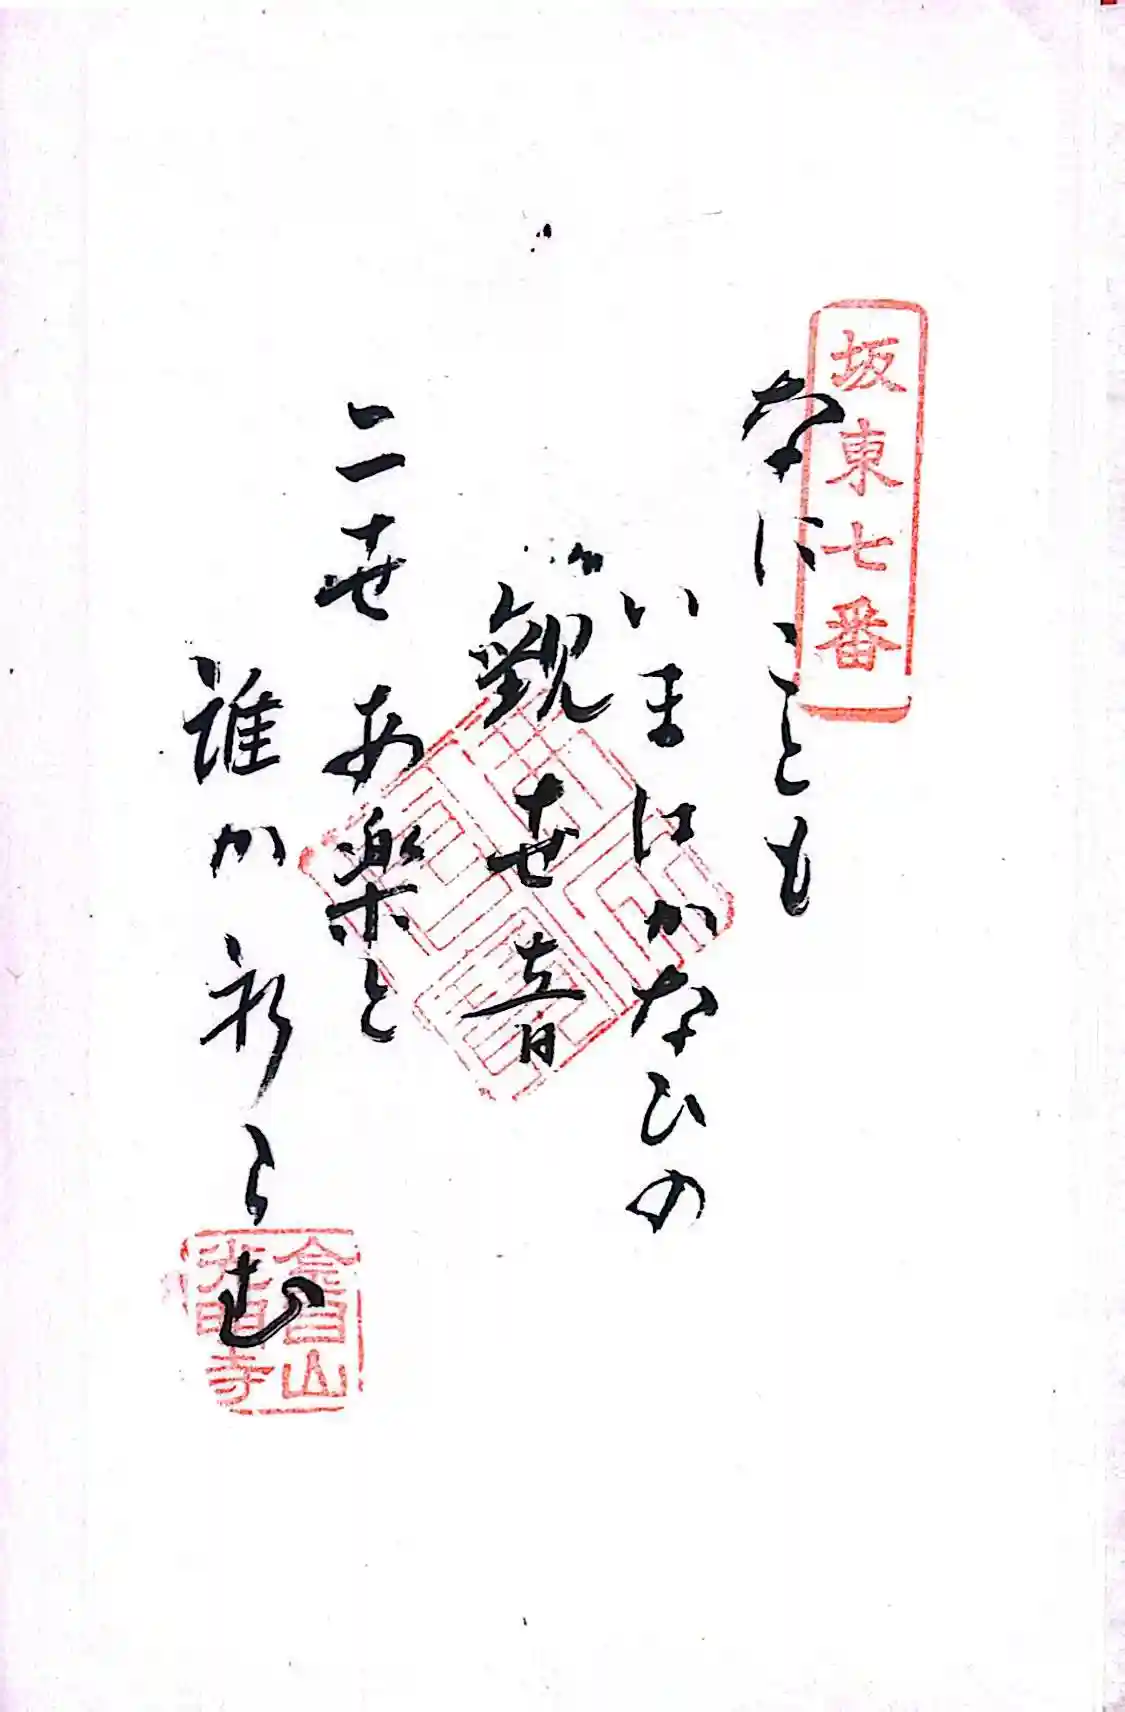 坂東七番
なにことも
いまはかなひの
観世音
二世あ楽と
誰か祈らむ
金目山
光明寺